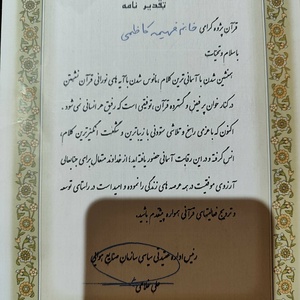 تقدیر نامه
قرآن پژوه گرامی خانم فهیمه کاظمی
با سلام و تحیات
همنشین شدن با آسمانی ترین کلام، مانوس شدن با آیه های نورانی قرآن، نشستن
در کنار خوان پر فیض و گسترده قرآن، توفیقی است که رفیق هر انسانی نمی شود.
اکنون که با عزمی راسخ و تلاشی ستودنی با زیباترین و شگفت انگیزترین کلام،
انس گرفته و در این رقابت آسمانی حضور یافته اید از خداوند متعال برای جنابعالی
آرزوی موفقیت در همه عرصه های زندگی را نموده و امید است در راستای توسعه
و ترویج فعالیتهای قرآنی همواره پیشقدم باشید.
رئیس اداره عقیدتی سیاسی سازمان صنایع هوایی
علی غلامی